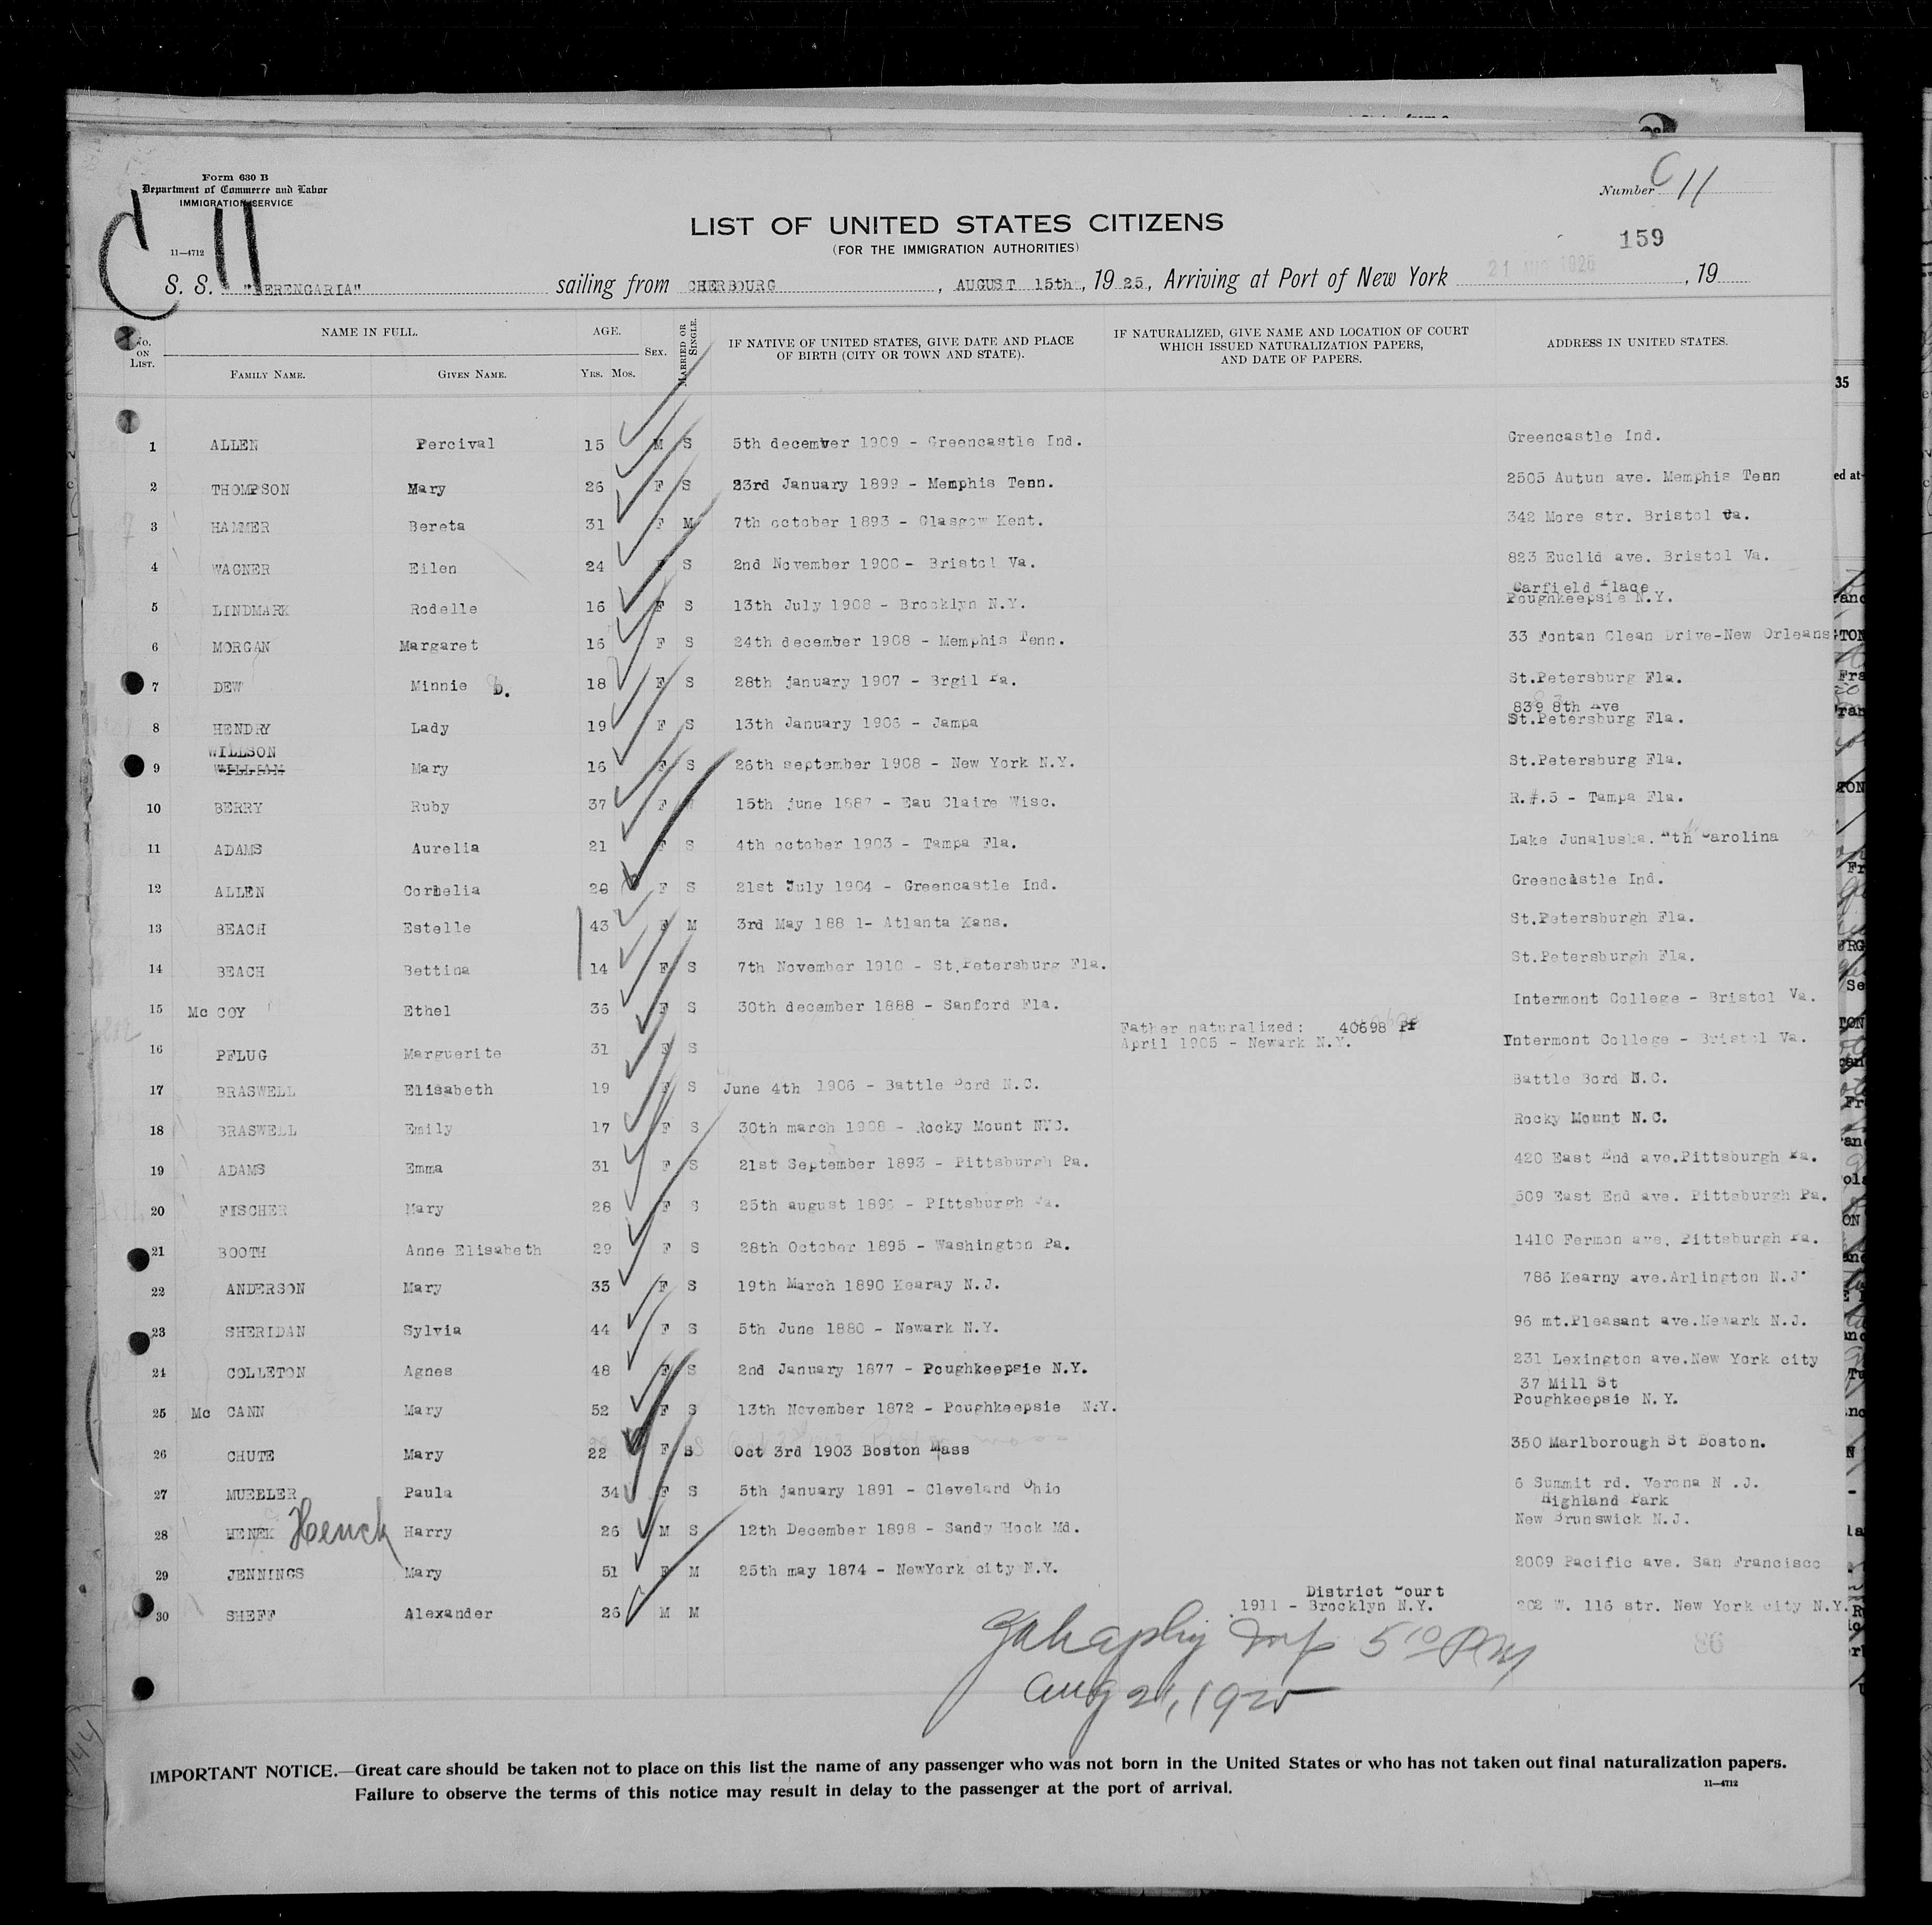 Form 630 B
Department of Commerce and Labor
IMMIGRATION SERVICE
C 11
11—4712
Number C 11
159
LIST OF UNITED STATES CITIZENS
(FOR THE IMMIGRATION AUTHORITIES)
S. S. "BERENGARIA" sailing from CHERBOURG, AUGUST 15th, 1925, Arriving at Port of New York 21 AUG 1925, 19
NO. ON LIST. NAME IN FULL. FAMILY NAME. GIVEN NAME. AGE. YRS. MOS. SEX. MARRIED OR SINGLE. IF NATIVE OF UNITED STATES, GIVE DATE AND PLACE OF BIRTH (CITY OR TOWN AND STATE). IF NATURALIZED, GIVE NAME AND LOCATION OF COURT WHICH ISSUED NATURALIZATION PAPERS, AND DATE OF PAPERS. ADDRESS IN UNITED STATES.
1 ALLEN Percival 15 M S 5th december 1909 - Greencastle Ind. Greencastle Ind.
2 THOMPSON Mary 26 F S 23rd January 1899 - Memphis Tenn. 2505 Autun ave. Memphis Tenn
3 HAMMER Bereta 31 F M 7th october 1893 - Glasgow Kent. 342 More str. Bristol Va.
4 WAGNER Eilen 24 F S 2nd November 1900 - Bristol Va. 823 Euclid ave. Bristol Va.
5 LINDMARK Rodelle 16 F S 13th July 1908 - Brooklyn N.Y. Garfield Place
Poughkeepsie N.Y.
6 MORGAN Margaret 16 F S 24th december 1908 - Memphis Tenn. 33 Fontan Clean Drive-New Orleans
7 DEW Minnie D. 18 F S 28th january 1907 - Brgil Pa. St.Petersburg Fla.
8 HENDRY Lady 19 F S 13th January 1906 - Jampa 839 8th Ave
St.Petersburg Fla.
WILLSON
9 WILLIAM Mary 16 F S 26th september 1908 - New York N.Y. St.Petersburg Fla.
10 BERRY Ruby 37 F 15th june 1887 - Eau Claire Wisc. R.#.5 - Tampa Fla.
11 ADAMS Aurelia 21 F S 4th october 1903 - Tampa Fla. Lake Junaluska. Nth Carolina
12 ALLEN Cornelia 20 F S 21st July 1904 - Greencastle Ind. Greencastle Ind.
13 BEACH Estelle 43 F M 3rd May 188 1- Atlanta Kans. St.Petersburgh Fla.
14 BEACH Bettina 14 F S 7th November 1910 - St.Petersburg Fla. St.Petersburgh Fla.
15 Mc COY Ethel 36 F S 30th december 1888 - Sanford Fla. Intermont College - Bristol Va.
16 PFLUG Marguerite 31 F S Father naturalized: 40698 Pf
April 1905 - Newark N.Y. Intermont College - Bristol Va.
17 BRASWELL Elisabeth 19 F S June 4th 1906 - Battle Bord N.C. Battle Bord N.C.
18 BRASWELL Emily 17 F S 30th march 1908 - Rocky Mount N.C. Rocky Mount N.C.
19 ADAMS Emma 31 F S 21st September 1893 - Pittsburgh Pa. 420 East End ave.Pittsburgh Pa.
20 FISCHER Mary 28 F S 25th august 1896 - PIttsburgh Pa. 509 East End ave. Pittsburgh Pa.
21 BOOTH Anne Elisabeth 29 F S 28th October 1895 - Washington Pa. 1410 Fermon ave, Pittsburgh Pa.
22 ANDERSON Mary 35 F S 19th March 1890 Kearay N.J. 786 Kearny ave.Arlington N.J.
23 SHERIDAN Sylvia 44 F S 5th June 1880 - Newark N.Y. 96 mt.Pleasant ave.Newark N.J.
24 COLLETON Agnes 48 F S 2nd January 1877 - Poughkeepsie N.Y. 231 Lexington ave.New York city
25 Mc CANN Mary 52 F S 13th November 1872 - Poughkeepsie N.Y. 37 Mill St
Poughkeepsie N.Y.
26 CHUTE Mary 22 F S Oct 3rd 1903 Boston Mass 350 Marlborough St Boston.
27 MUELLER Paula 34 F S 5th january 1891 - Cleveland Ohio 6 Summit rd. Verona N .J.
28 HENEK Henck Harry 26 M S 12th December 1898 - Sandy Hook Md. Highland Park
New Brunswick N.J.
29 JENNINGS Mary 51 F M 25th may 1874 - NewYork city N.Y. 2009 Pacific ave. San Francisco
30 SHEFF Alexander 26 M M District Court
1911 - Brooklyn N.Y. 202 W. 116 str. New York city N.Y.
86
5 10 PM
Aug 21, 1925
IMPORTANT NOTICE.—Great care should be taken not to place on this list the name of any passenger who was not born in the United States or who has not taken out final naturalization papers.
Failure to observe the terms of this notice may result in delay to the passenger at the port of arrival.
11—4712